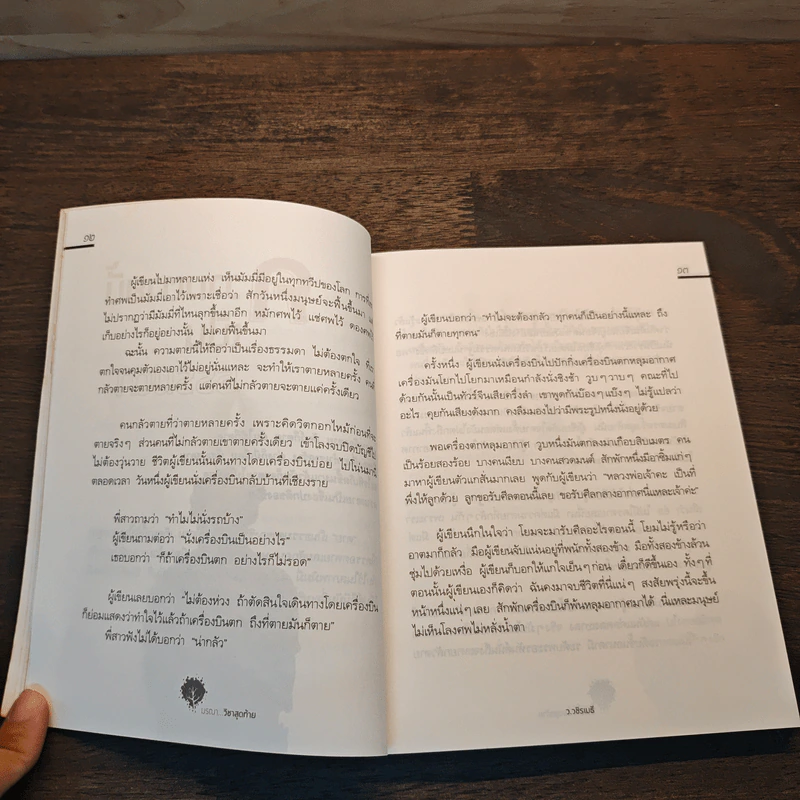 ๑๒
ผู้เขียนไปมาหลายแห่ง เห็นมัมมี่มีอยู่ในทุกทวีปของโลก การที่
ทำศพเป็นมัมมี่เอาไว้เพราะเชื่อว่า สักวันหนึ่งมนุษย์จะฟื้นขึ้นมา
ไม่ปรากฏว่ามีมัมมี่ที่ไหนลุกขึ้นมาอีก หมักศพไว้ แช่ศพไว้ ดองศพ
เก็บอย่างไรก็อยู่อย่างนั้น ไม่เคยฟื้นขึ้นมา
ฉะนั้น ความตายนี้ให้ถือว่าเป็นเรื่องธรรมดา ไม่ต้องตกใจ
ตกใจจนคุมตัวเองเอาไว้ไม่อยู่นั่นแหละ จะทำให้เราตายหลายครั้ง
กลัวตายจะตายหลายครั้ง แต่คนที่ไม่กลัวตายจะตายแค่ครั้งเดียว
คนกลัวตายที่ว่าตายหลายครั้ง เพราะคิดวิตกอกไหม้ก่อนที่จะ
ตายจริงๆ ส่วนคนที่ไม่กลัวตายเขาตายครั้งเดียว เข้าโลงจบปิดบัญชี
ไม่ต้องวุ่นวาย ชีวิตผู้เขียนนั้นเดินทางโดยเครื่องบินบ่อย ไปโน่นมานี่
ตลอดเวลา วันหนึ่งผู้เขียนนั่งเครื่องบินกลับบ้านที่เชียงราย
พี่สาวถามว่า “ทำไมไม่นั่งรถบ้าง”
ผู้เขียนถามต่อว่า “นั่งเครื่องบินเป็นอย่างไร”
เธอบอกว่า “ก็ถ้าเครื่องบินตก อย่างไรก็ไม่รอด”
ผู้เขียนเลยบอกว่า “ไม่ต้องห่วง ถ้าตัดสินใจเดินทางโดยเครื่องบิน
ก็ย่อมแสดงว่าทำใจไว้แล้วถ้าเครื่องบินตก ถึงที่ตายมันก็ตาย”
พี่สาวฟังไม่ได้บอกว่า “น่ากลัว”
มรณา วิชาสุดท้าย
๑๓
ผู้เขียนบอกว่า “ทำไมจะต้องกลัว ทุกคนก็เป็นอย่างนี้แหละ ถึง
ที่ตายมันก็ตายทุกคน”
ครั้งหนึ่ง ผู้เขียนนั่งเครื่องบินไปปักกิ่งเครื่องบินตกหลุมอากาศ
เครื่องมันโยกไปโยกมาเหมือนกำลังนั่งชิงช้า วูบๆวาบๆ คณะที่ไป
ด้วยกันนั้นเป็นทัวร์จีนเสียครึ่งลำ เขาพูดกันบ๊องๆแบ๊งๆ ไม่รู้แปลว่า
อะไร คุยกันเสียงดังมาก คงลืมมองไปว่ามีพระรูปหนึ่งนั่งอยู่ด้วย
พอเครื่องตกหลุมอากาศ วูบหนึ่งมันตกลงมาเกือบสิบเมตร คน
เป็นร้อยสองร้อย บางคนเงียบ บางคนสวดมนต์ สักพักหนึ่งมีอาซิ้มแก่ๆ
มาหาผู้เขียนตัวแกสั่นมากเลย พูดกับผู้เขียนว่า “หลวงพ่อเจ้าคะ เป็นที่
พึ่งให้ลูกด้วย ลูกขอรับศีลตอนนี้เลย ขอรับศีลกลางอากาศนี่แหละเจ้าค่ะ”
ผู้เขียนนึกในใจว่า โยมจะมารับศีลอะไรตอนนี้ โยมไม่รู้หรือว่า
อาตมาก็กลัว มือผู้เขียนจับแน่นอยู่ที่พนักทั้งสองข้าง มือทั้งสองข้างล้วน
ชุ่มไปด้วยเหงื่อ ผู้เขียนก็บอกให้แกใจเย็นๆก่อน เดี๋ยวก็ดีขึ้นเอง ทั้งๆที่
ตอนนั้นผู้เขียนเองก็คิดว่า ฉันคงมาจบชีวิตที่นี่แน่ๆ สงสัยพรุ่งนี้จะขึ้น
หน้าหนึ่งแน่ๆเลย สักพักเครื่องบินก็พ้นหลุมอากาศมาได้ นี่แหละมนุษย์
ไม่เห็นโลงศพไม่หลั่งน้ำตา
ว.วชิรเมธี